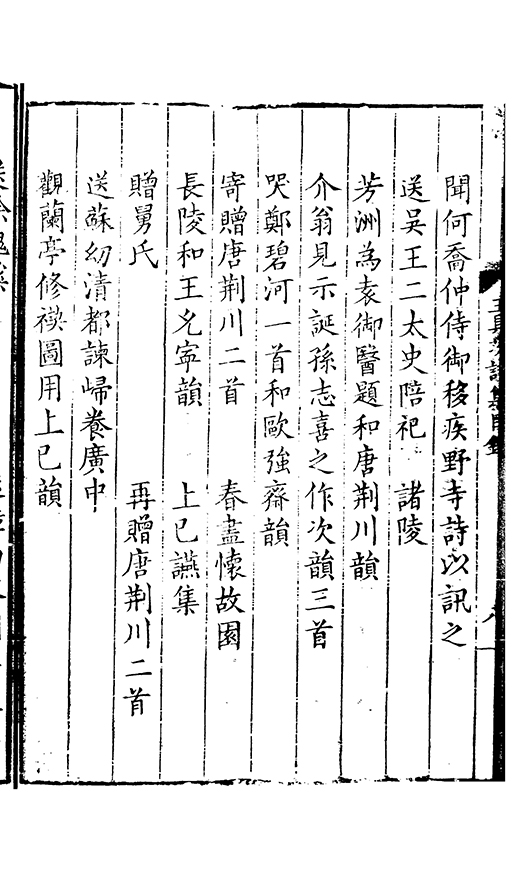 聞何喬仲侍御移疾野寺詩以訊之
送吳王二太史陪祀　諸陵
芳洲為袁御醫題和唐荆川韻
介翁見示誕孫志喜之作次韻三首
哭鄭碧河一首和歐強齋韻
寄贈唐荆川二首　春盡懷故園
長陵和王允寧韻　上巳讌集
贈舅氏　再贈唐荆川二首
送蘇幼清都諫歸養廣中
觀蘭亭修禊圖用上巳韻